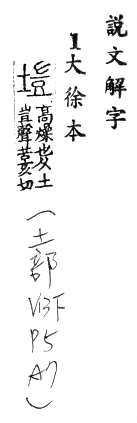 說文解字
1大徐本
塏
高燥也从土
豈聲苦亥切
(土部 V13下 P5 A7)